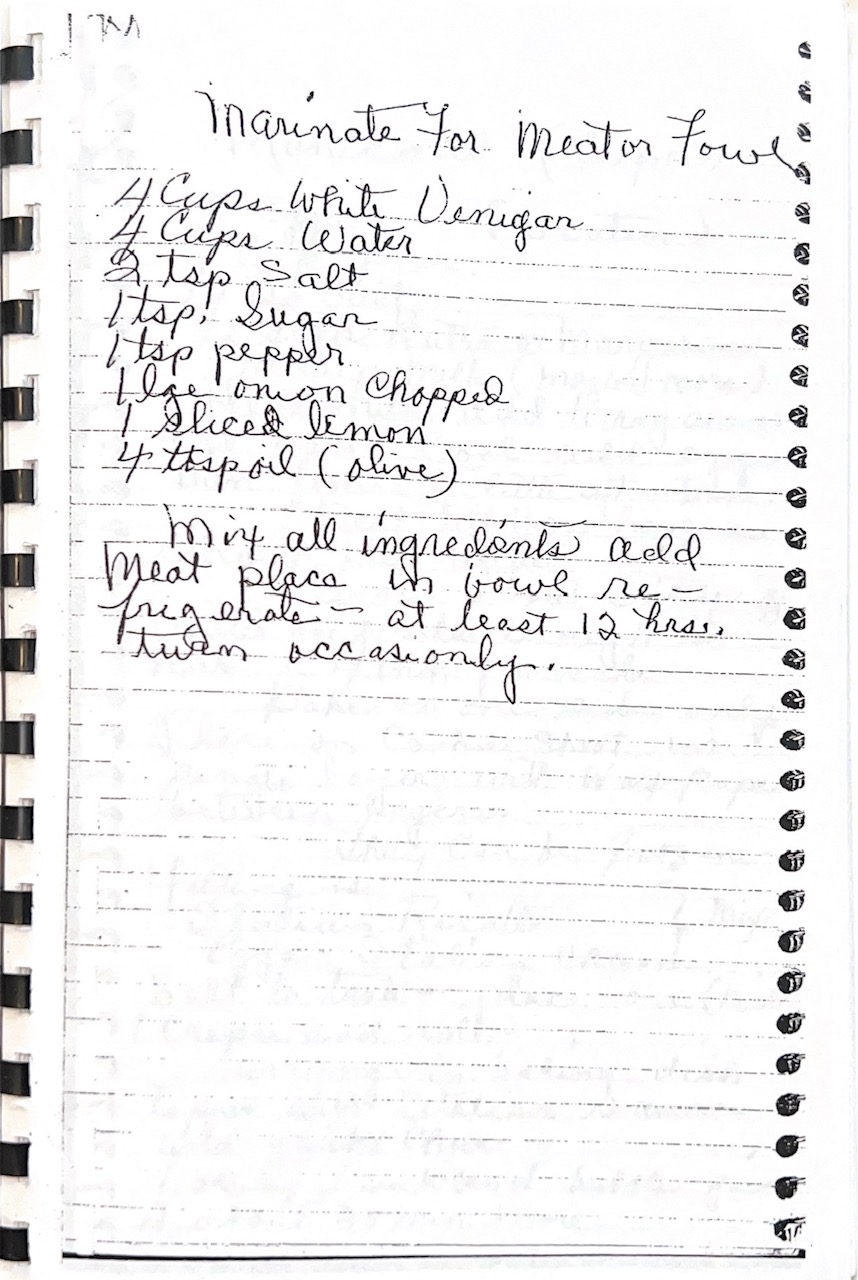 Marinate For Meat or Fowl
4 Cups White Venigar
4 Cups Water
2 tsp Salt
1 tsp. Sugar
1 tsp pepper
1 lge onion Chopped
1 Sliced lemon
4 tbsp oil (olive)
Mix all ingredents add
Meat place in bowl re-
frigerate - at least 12 hrs.
turn occasionly.